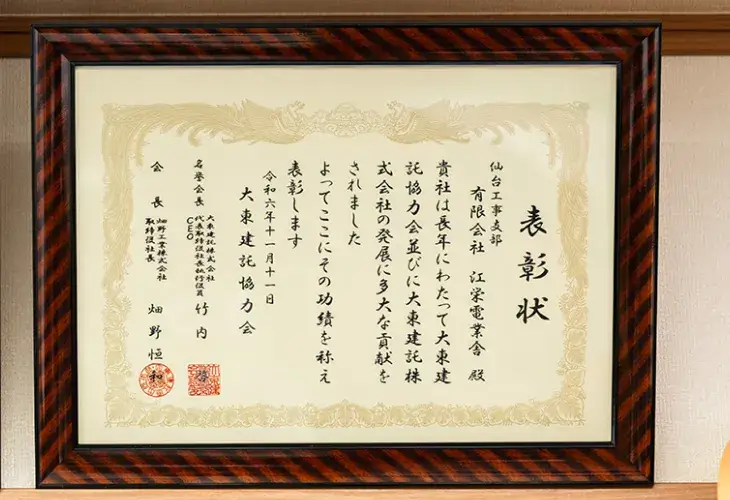 表彰状
仙台工事支部
有限会社 江栄電業舎 殿
貴社は長年にわたって大東建
託協力会並びに大東建託株
式会社の発展に多大な貢献を
されました
よってここにその功績を称え
表彰します
令和六年十一月十一日
大東建託協力会
名誉会長 大東建託株式会社
代表取締役社長執行役員
CEO
竹内 啓
会長 畑野工業株式会社
取締役社長
畑野恒和